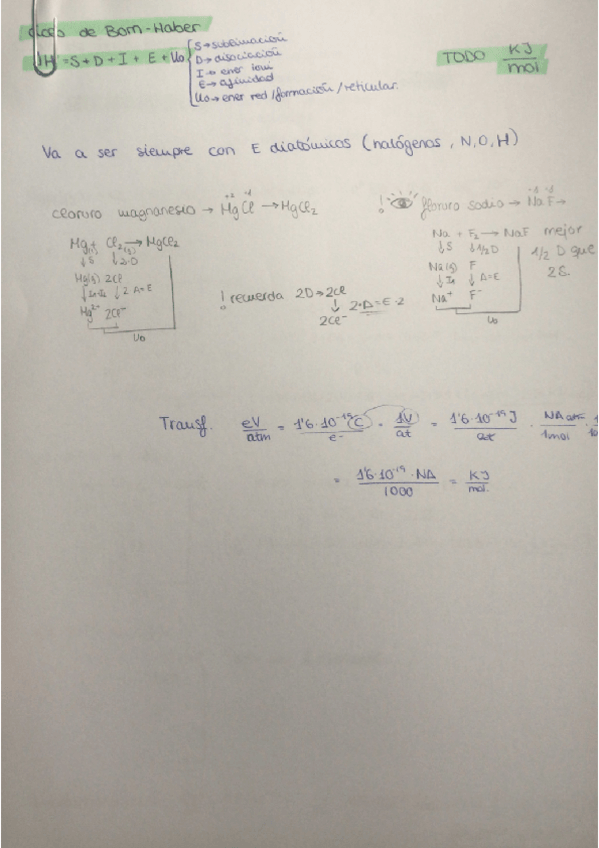 Ciclo de Born-Haber
H = S + D + I + E + Uo
S → sublimación
D → disociación
I → ener ioni
E → afinidad
Uo → ener red / formación / reticular.
TODO KJ/mol
Va a ser siempre con E diatómicos (halógenos, N, O, H)
cloruro magnanesio → Mg⁺²Cl⁻¹ → MgCl₂
! floruro sodio → Na⁺¹F⁻¹ →
Mg(s) + Cl₂(g) → MgCl₂
↓S ↓2·D
Mg(g) 2Cl
↓I₁+I₂ ↓2 A=E
Mg²⁺ 2Cl⁻
Uo
! recuerda 2D → 2Cl
↓ 2·A = E·2
2Cl⁻
Na + F₂ → NaF mejor
↓S ↓1/2D 1/2 D que
Na(g) F 2S.
↓I₁ ↓A=E
Na⁺ F⁻
Uo
Transf. eV/atm = 1'6·10⁻¹⁹ C/e⁻ · 1V/at = 1'6·10⁻¹⁹ J/at · NA atm/1mol
= 1'6·10⁻¹⁹·NA/1000 = KJ/mol.